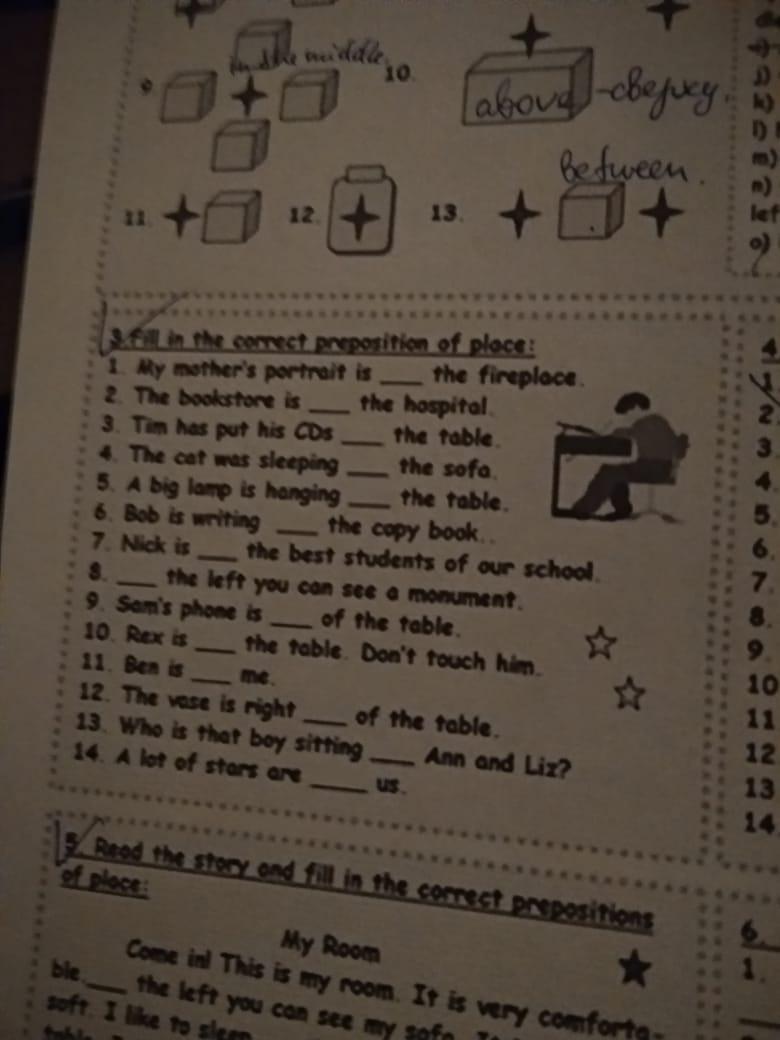 in the middle
9
10.
above - сверху.
between.
11.
12.
13.
3. Fill in the correct preposition of place:
1. My mother's portrait is ____ the fireplace.
2. The bookstore is ____ the hospital.
3. Tim has put his CDs ____ the table.
4. The cat was sleeping ____ the sofa.
5. A big lamp is hanging ____ the table.
6. Bob is writing ____ the copy book..
7. Nick is ____ the best students of our school.
8. ____ the left you can see a monument.
9. Sam's phone is ____ of the table.
10. Rex is ____ the table. Don't touch him.
11. Ben is ____ me.
12. The vase is right ____ of the table.
13. Who is that boy sitting ____ Ann and Liz?
14. A lot of stars are ____ us.
5. Read the story and fill in the correct prepositions
of place:
My Room
Come in! This is my room. It is very comforta-
ble.____ the left you can see my sofa.
soft. I like to sleep
j)
k)
l)
m)
n)
lef
o)
4
1
2.
3.
4.
5.
6.
7.
8.
9.
10
11
12
13
14
6.
1.